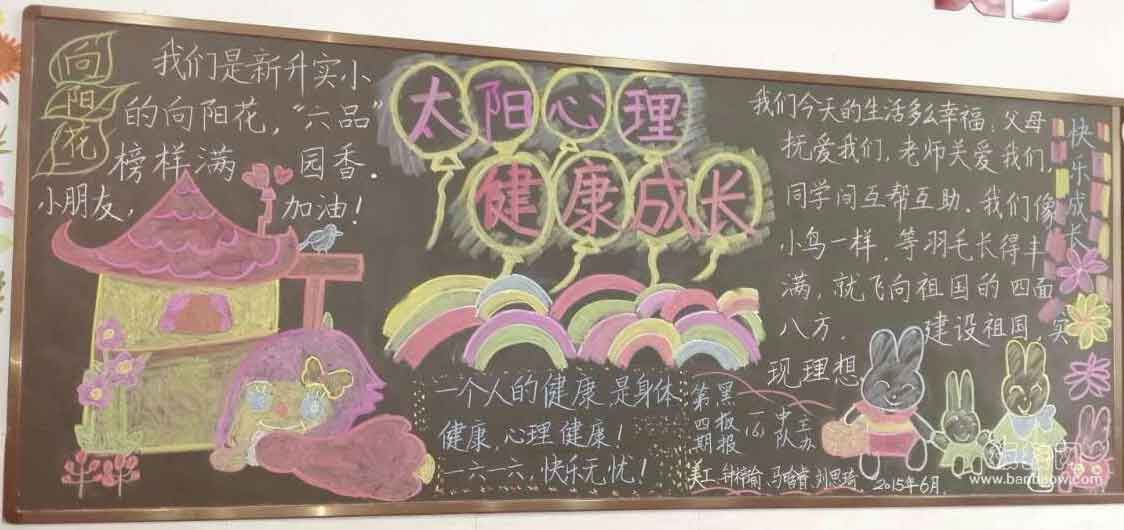 向阳花
我们是新升实小
的向阳花，“六品”
榜样满 园香．
小朋友， 加油！
太阳心理
健康成长
一个人的健康是身体
健康，心理健康！
一六一六，快乐无忧！
第四期
黑板报
一(6)
中队
主办
美工、钟梓渝、马晗睿、刘思琦，2015年6月．
我们今天的生活多么幸福：父母
抚爱我们，老师关爱我们，
同学间互帮互助．我们像
小鸟一样．等羽毛长得丰
满，就飞向祖国的四面
八方． 建设祖国，实
现理想
快乐成长
www.banbaow.com